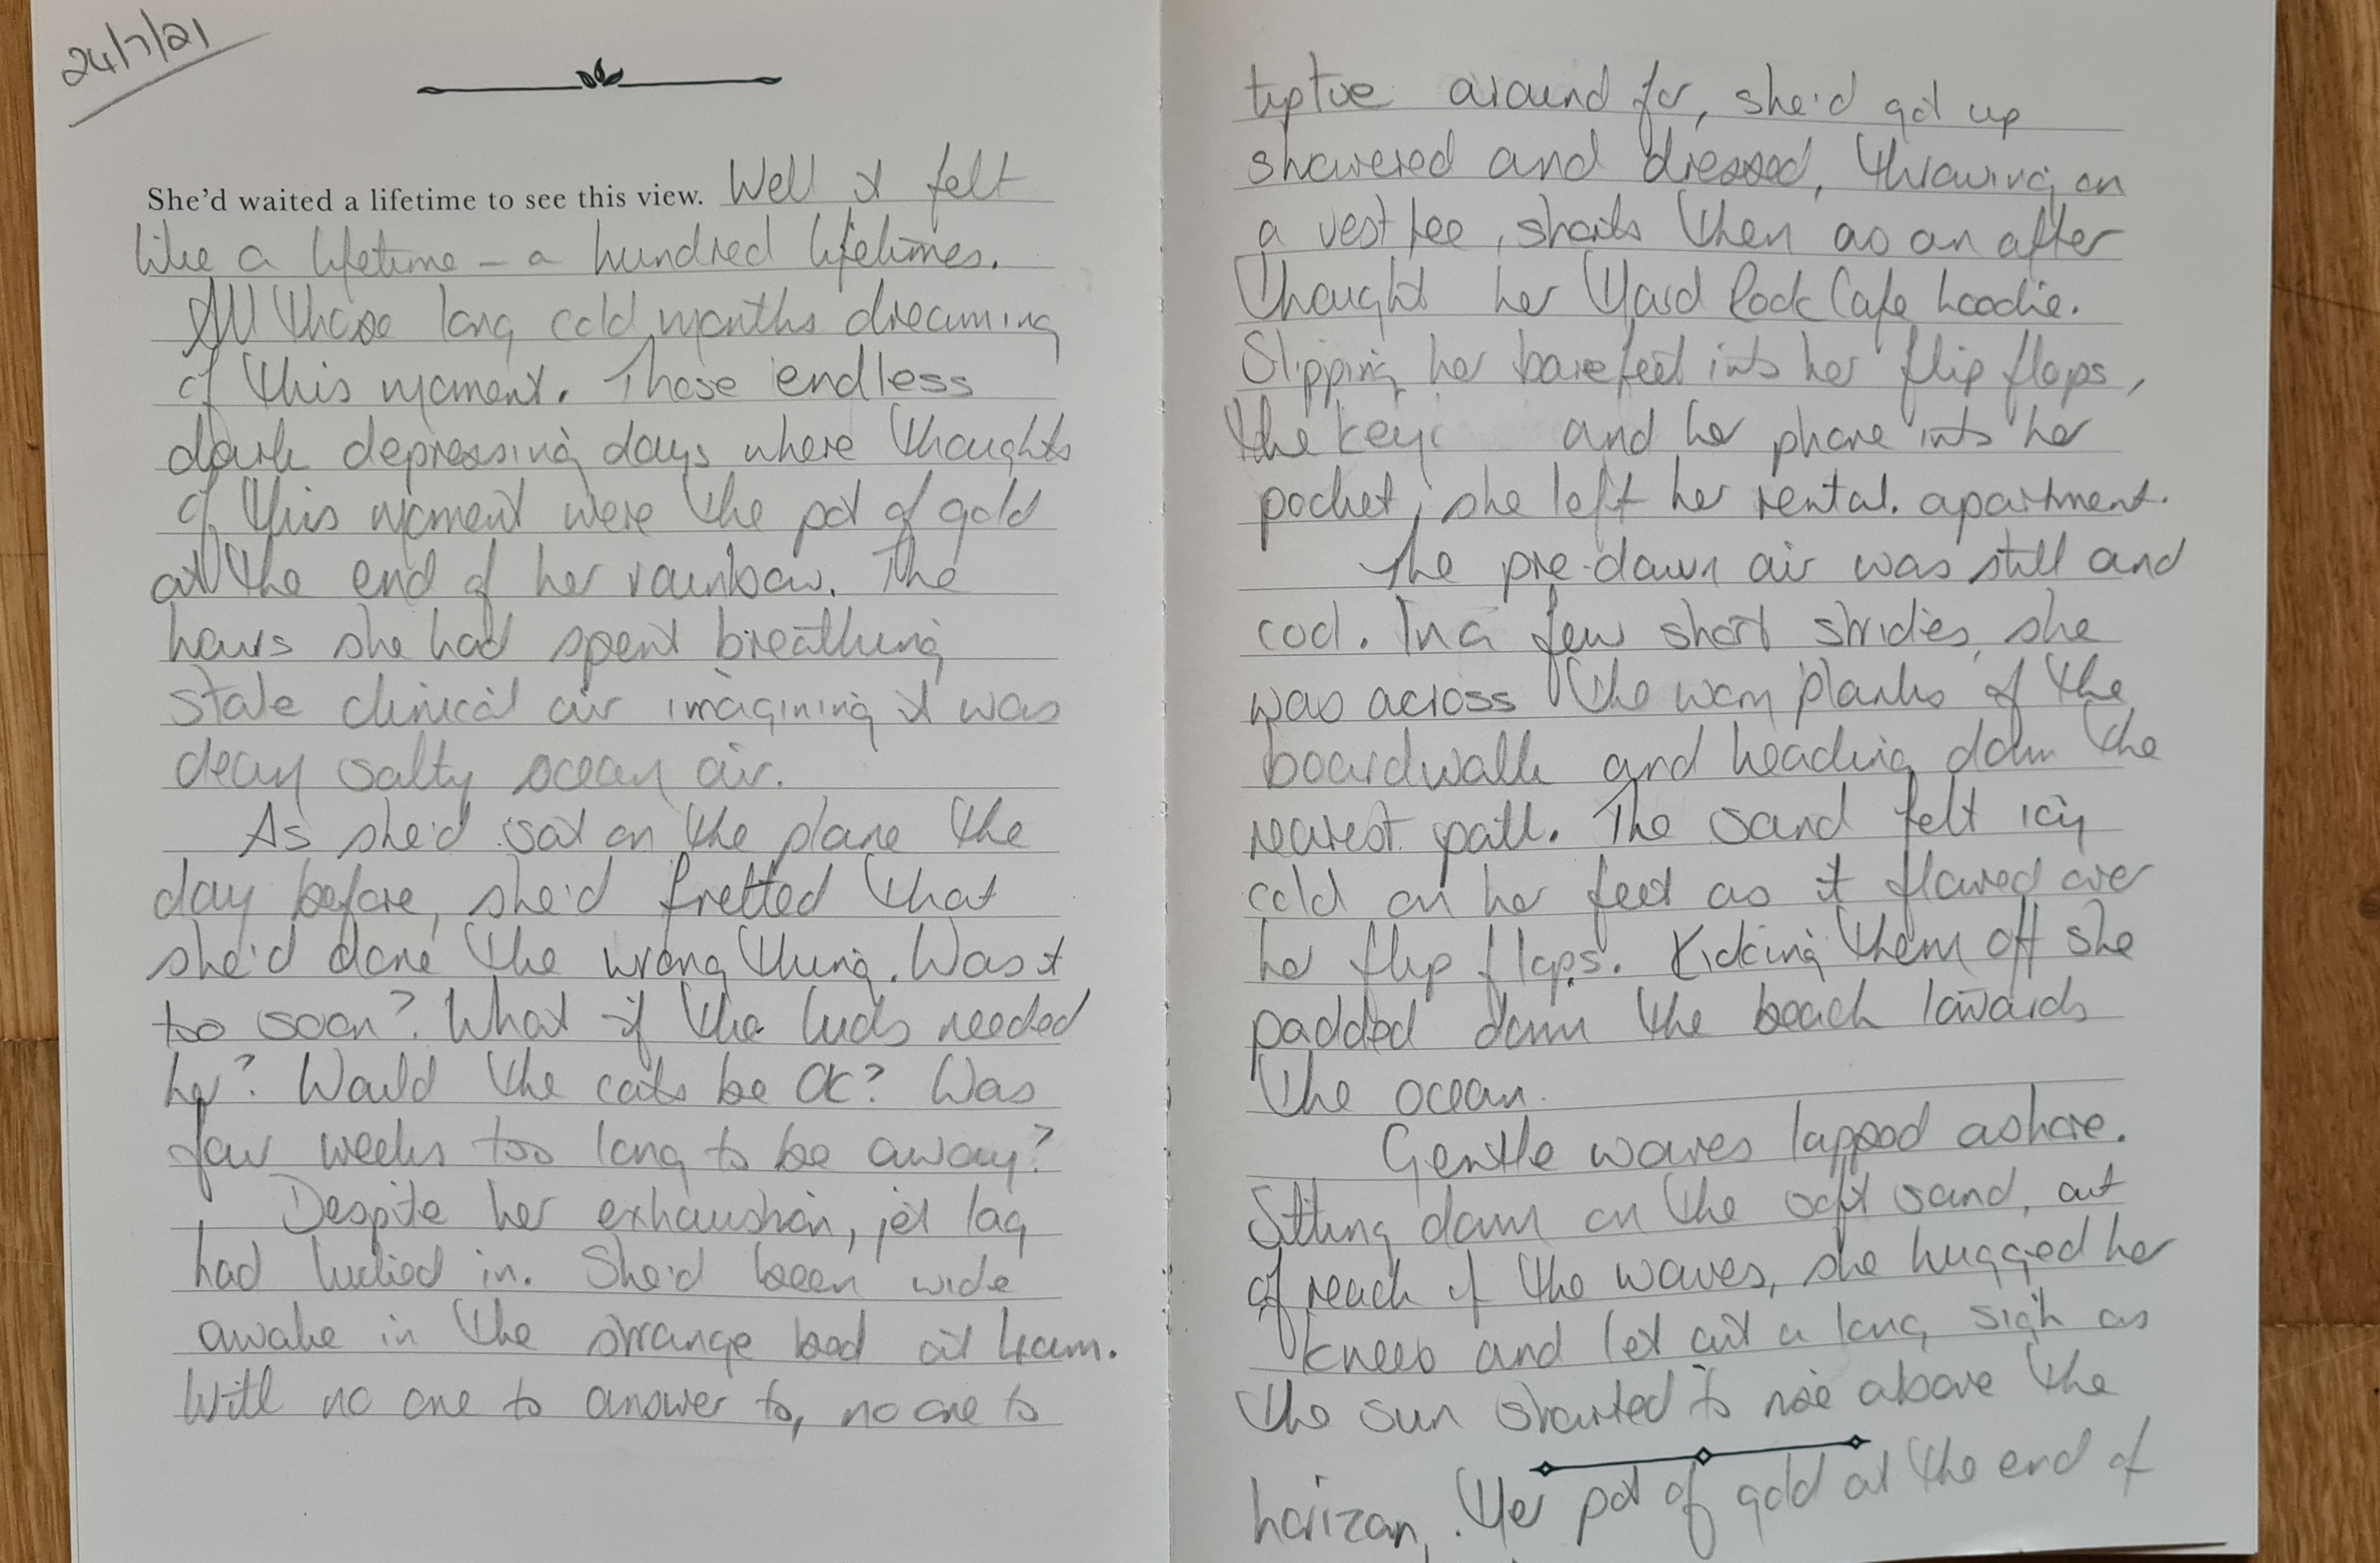 24/7/21
She'd waited a lifetime to see this view. Well it felt
like a lifetime – a hundred lifetimes.
All those long cold months dreaming
of this moment. Those endless
dark depressing days where thoughts
of this moment were the pot of gold
at the end of her rainbow. The
hours she had spent breathing
stale clinical air imagining it was
clean salty ocean air.
As she'd sat on the plane the
day before, she'd fretted that
she'd done the wrong thing. Was it
too soon? What if the kids needed
her? Would the cats be OK? Was
four weeks too long to be away?
Despite her exhaustion, jet lag
had kicked in. She'd been wide
awake in the strange bed at 4am.
With no one to answer to, no one to
tiptoe around for, she'd got up
showered and dressed, throwing on
a vest tee, shorts then as an after
thought her Hard Rock Cafe hoodie.
Slipping her bare feet into her flip flops,
the key and her phone into her
pocket, she left her rental. apartment.
The pre-dawn air was still and
cool. In a few short strides, she
was across the worn planks of the
boardwalk and heading down the
nearest path. The sand felt icy
cold on her feet as it flowed over
her flip flops. Kicking them off she
padded down the beach towards
the ocean.
Gentle waves lapped ashore.
Sitting down on the soft sand, out
of reach of the waves, she hugged her
knees and let out a long sigh as
the sun started to rise above the
horizon. Her pot of gold at the end of